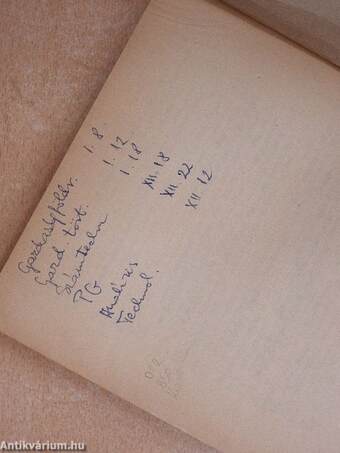 Gazdaságföldr. I. 8.
Gazd. tört. I. 12
Számtechn I. 18
PG XII. 18
Analízis XII. 22
Technol. XII 12
Antikvárium.hu